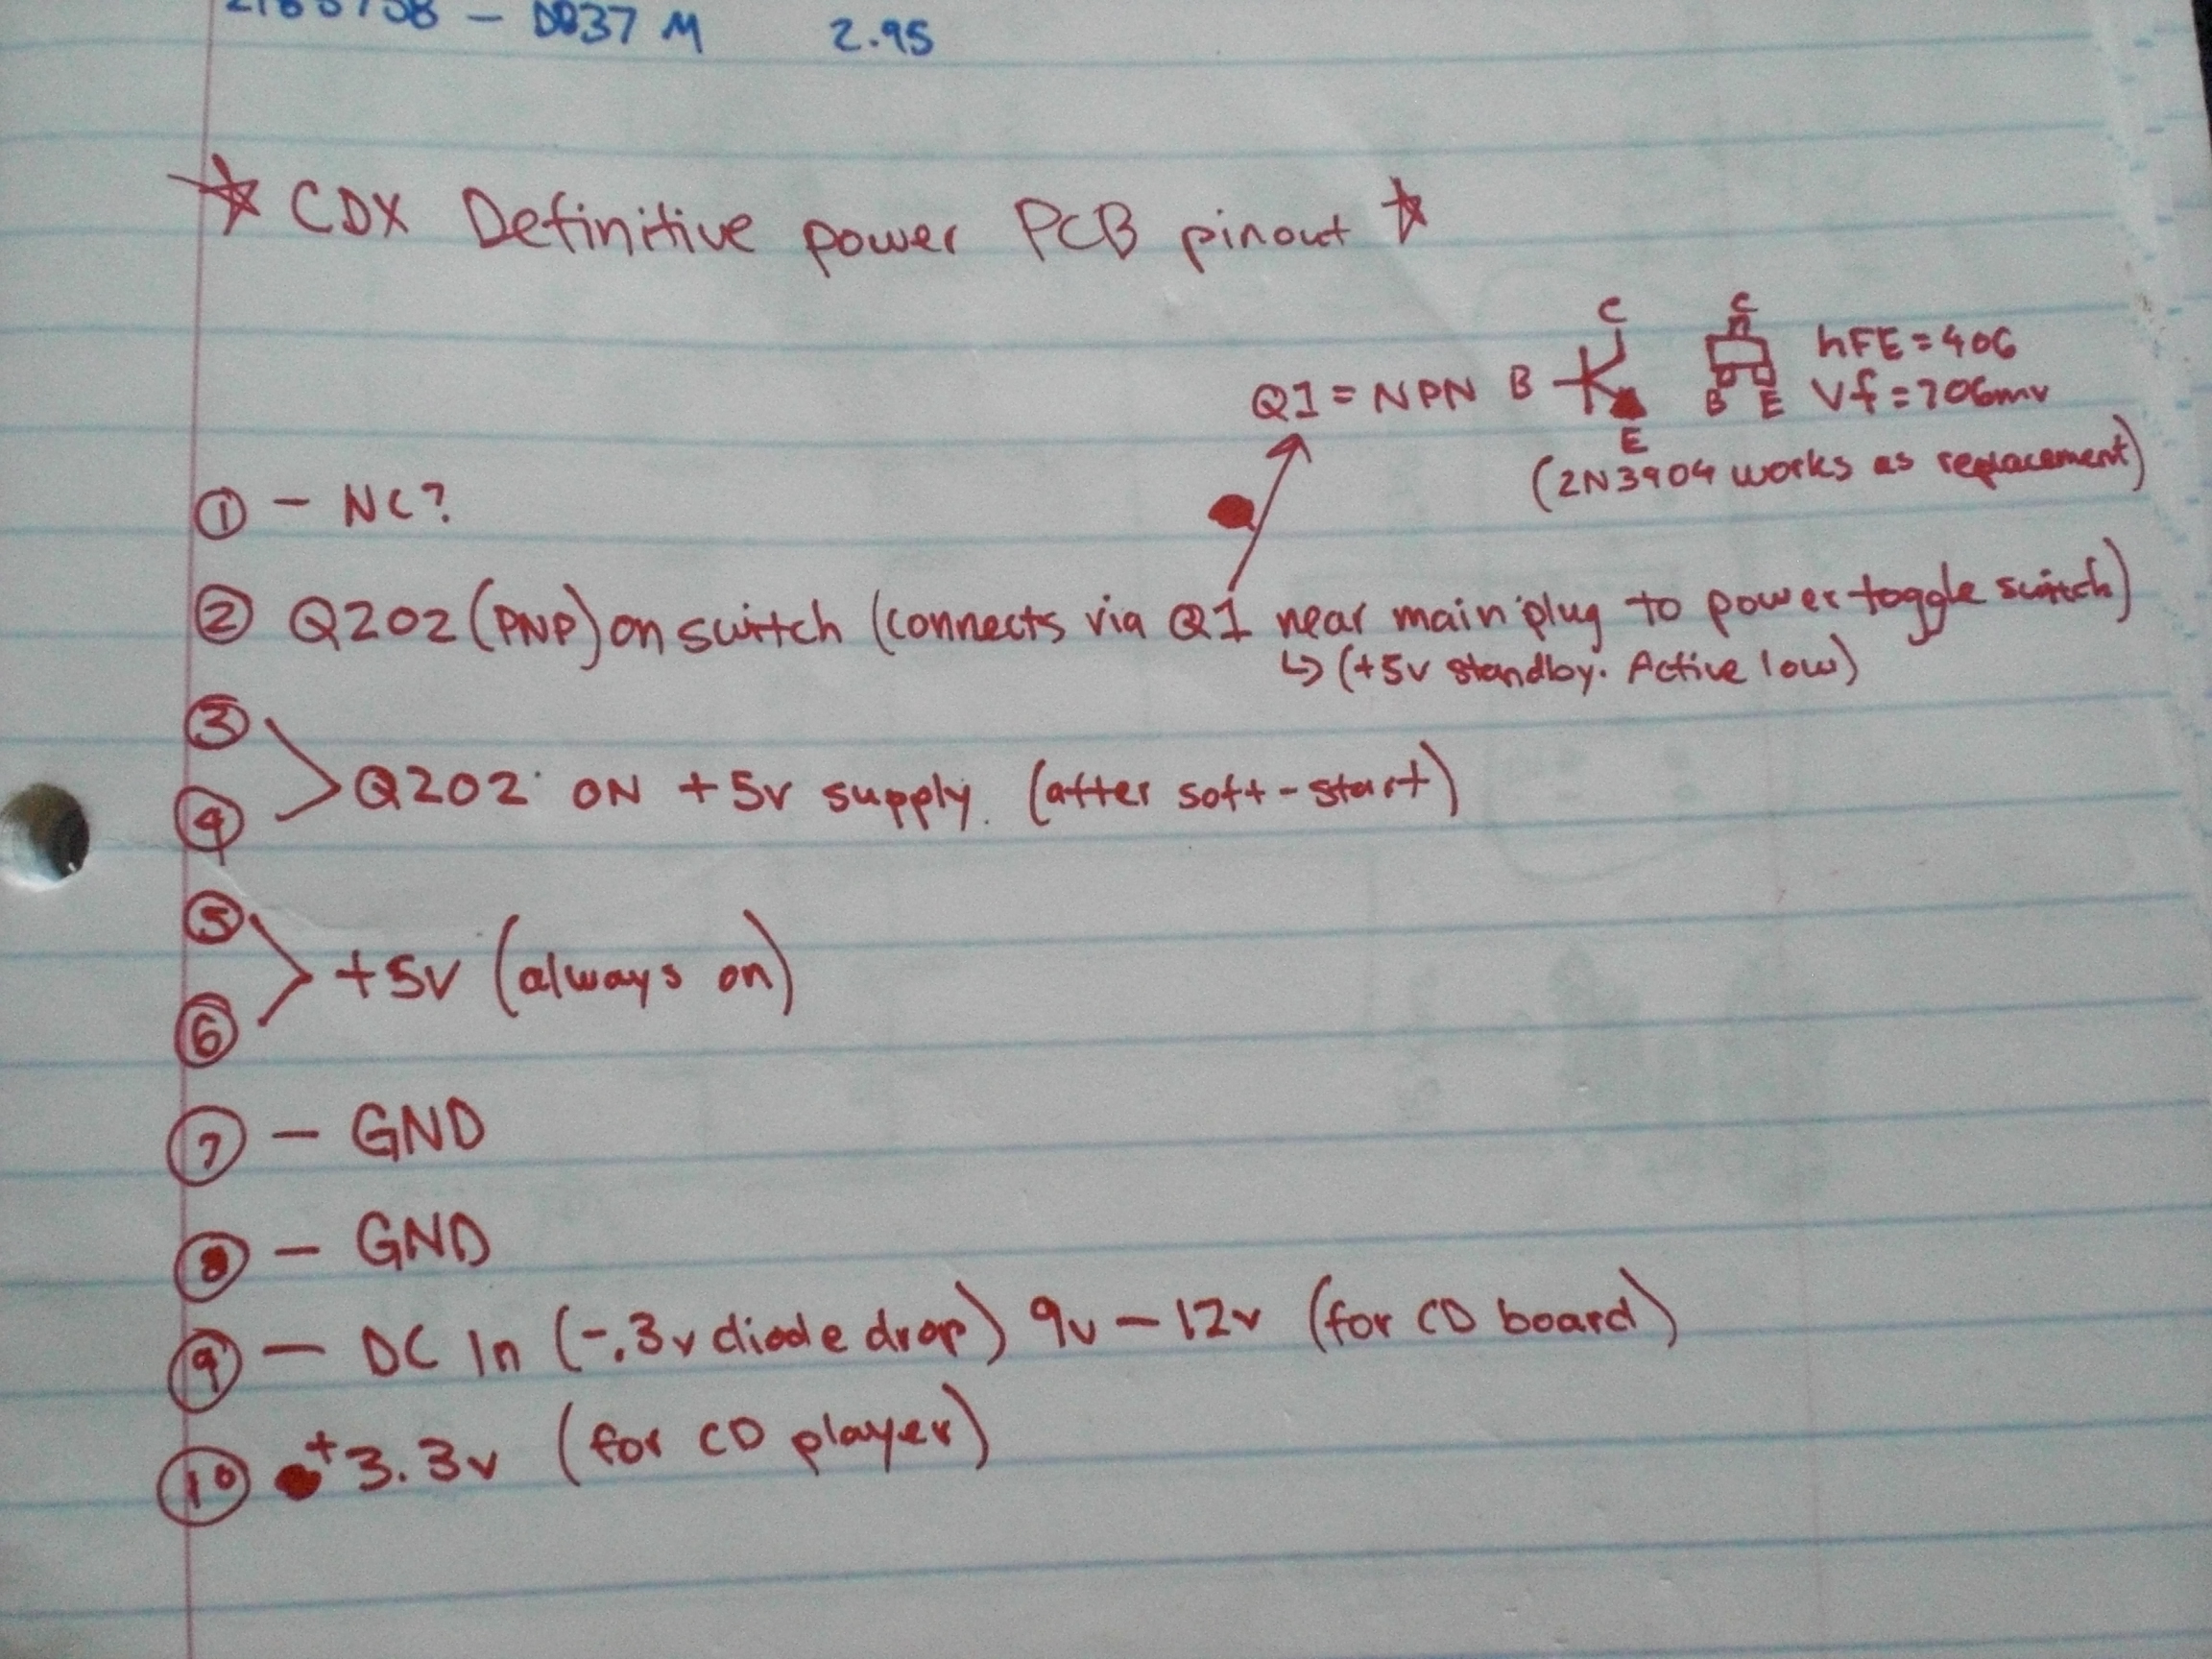 - DB37 M 2.95
☆ CDX Definitive power PCB pinout ☆
C C hFE=406
Q1 = NPN B B E Vf=706mv
E
(2N3904 works as replacement)
① - NC?
② Q202 (PNP) on switch (connects via Q1 near main plug to power toggle switch)
↳ (+5v standby. Active low)
③
④ Q202 ON +5v supply. (after soft-start)
⑤
⑥ +5v (always on)
⑦ - GND
⑧ - GND
⑨ - DC In (-.3v diode drop) 9v - 12v (for CD board)
⑩ +3.3v (for CD player)